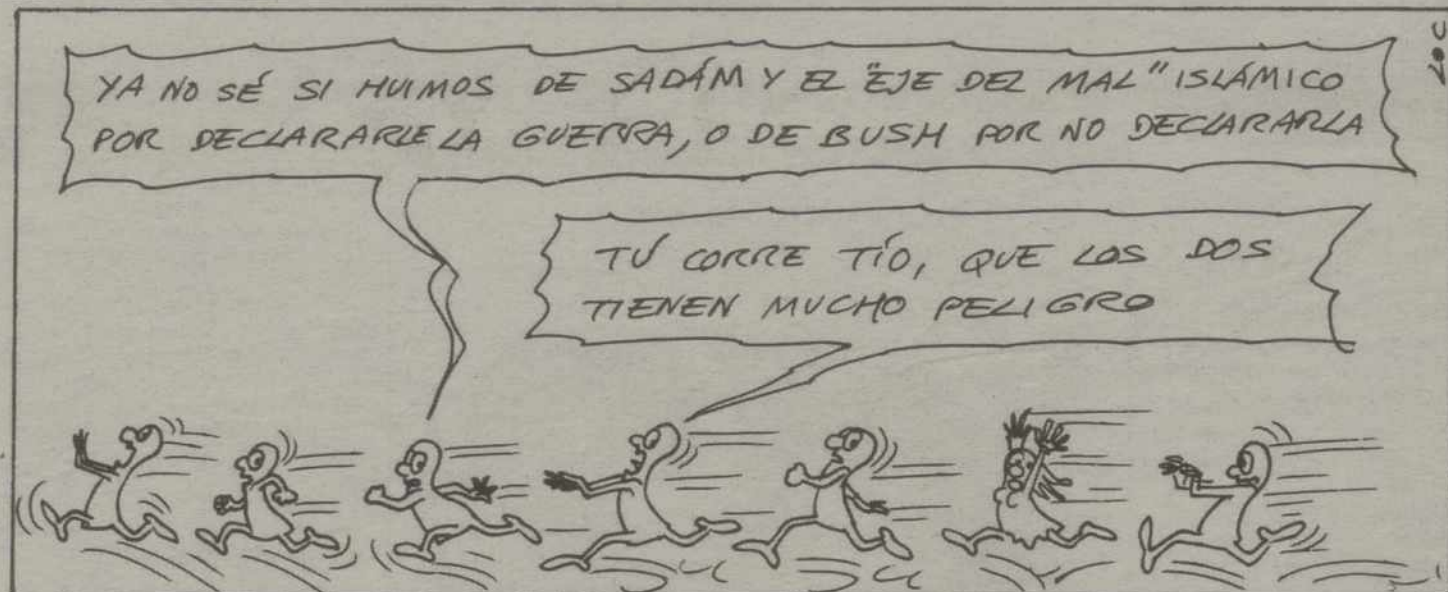 YA NO SÉ SI HUIMOS DE SADÁM Y EL "EJE DEL MAL" ISLÁMICO
POR DECLARARLE LA GUERRA, O DE BUSH POR NO DECLARARLA
TÚ CORRE TÍO, QUE LOS DOS
TIENEN MUCHO PELIGRO